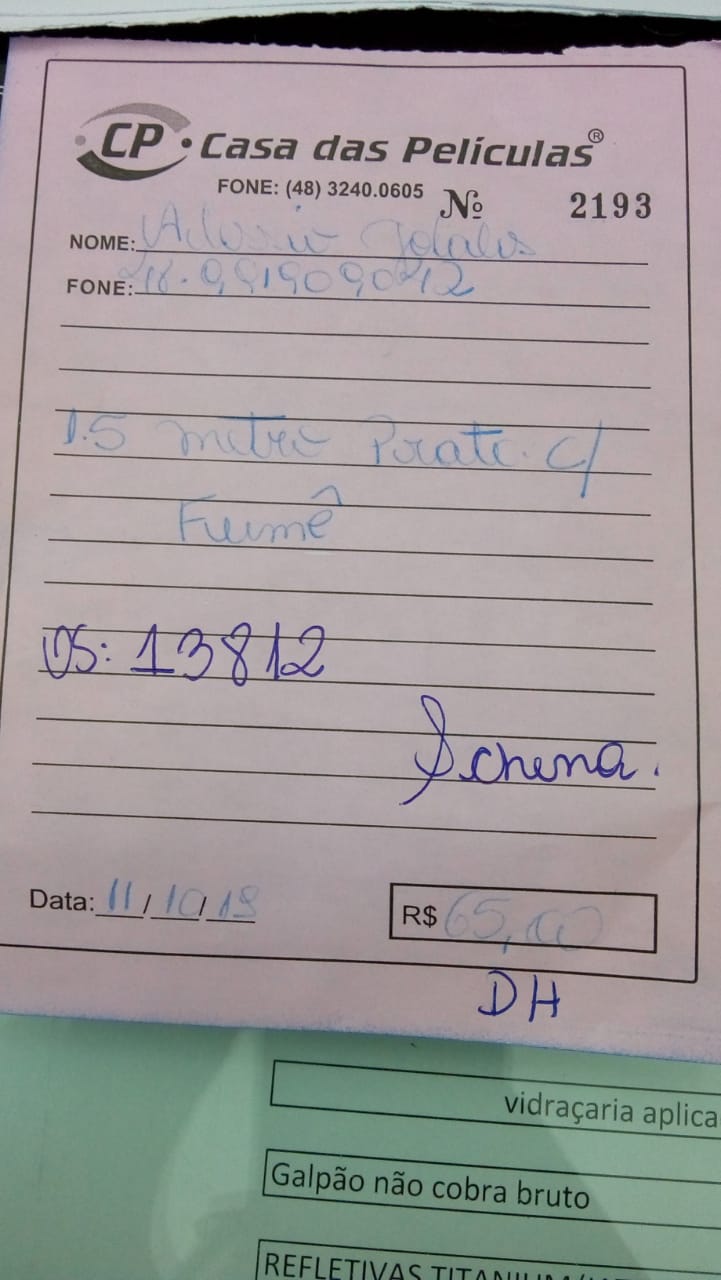 CP • Casa das Películas®
FONE: (48) 3240.0605 Nº 2193
NOME:
FONE:
1.5 metro Prata c/
Fumê
OS: 13812
Schena.
Data: 11/10/19 R$ 65,00
DH
vidraçaria aplica
Galpão não cobra bruto
REFLETIVAS TITANIUM